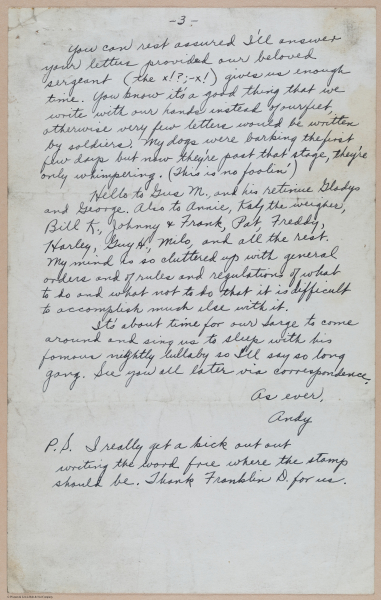 - 3 -
You can rest assured I'll answer
your letters provided our beloved
sergeant (the x!?;-x!) gives us enough
time. You know its a good thing that we
write with our hands instead of our feet,
otherwise very few letters would be written
by soldiers. My dogs were barking the first
few days but now they're past that stage, they're
only whimpering. (This is no foolin')
Hello to Gus M. and his retinue Gladys
and George. Also to Annie, Katy the weigher,
Bill K, Johnny & Frank, Pat, Freddy,
Harley, Guy H, Milo, and all the rest.
My mind is so cluttered up with general
orders and of rules and regulations of what
to do and what not to do that it is difficult
to accomplish much else with it.
It's about time for our Sarge to come
around and sing us to sleep with his
famous nightly lullaby so I'll say so long
gang. See you all later via correspondence.
As ever,
Andy
P.S. I really get a kick out out
writing the word free where the stamp
should be. Thank Franklin D. for us.